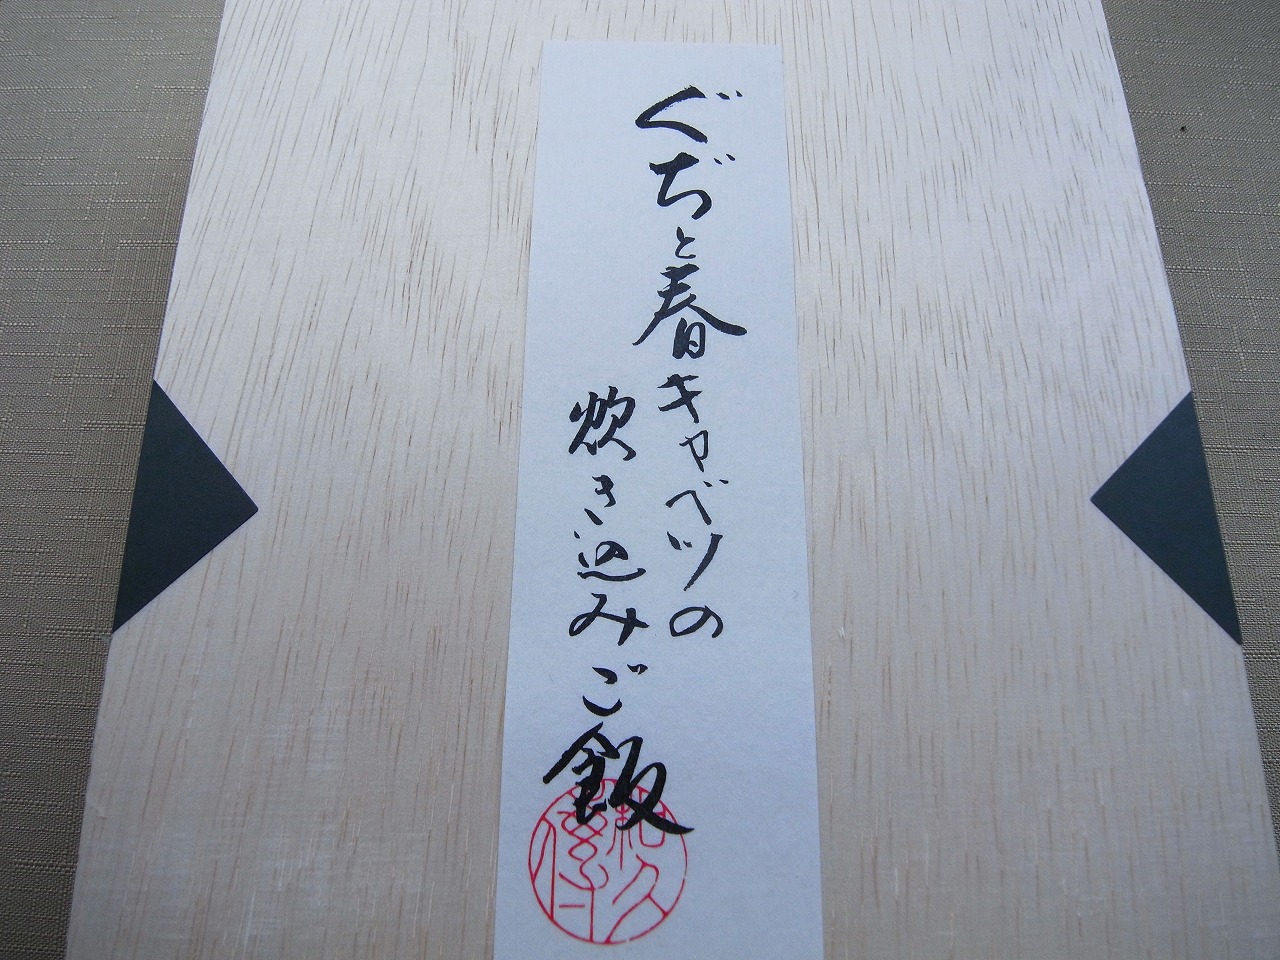 ぐぢと春キャベツの
炊き込みご飯